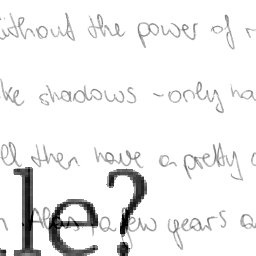 without the power of
ke shadows - only ha
ll then have a pretty
le?
a few years a